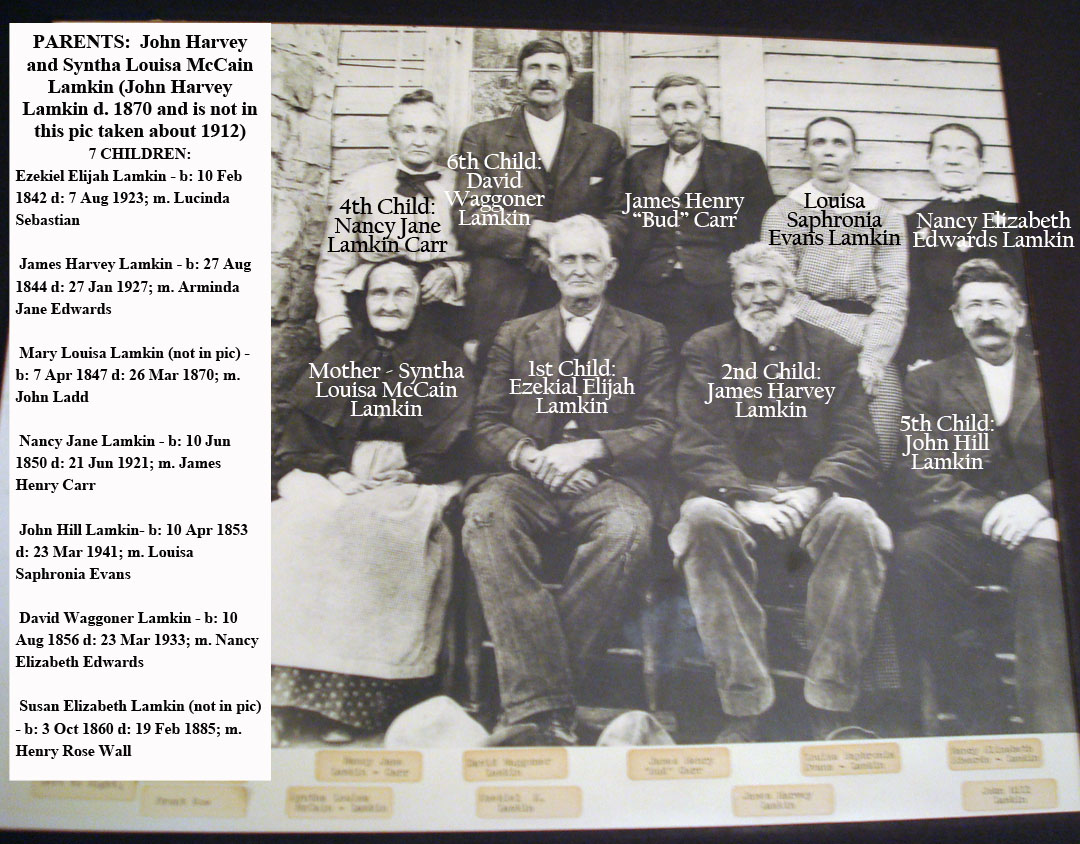 PARENTS:  John Harvey
and Syntha Louisa McCain
Lamkin (John Harvey
Lamkin d. 1870 and is not in
this pic taken about 1912)
7 CHILDREN:
Ezekiel Elijah Lamkin - b: 10 Feb
1842 d: 7 Aug 1923; m. Lucinda
Sebastian
James Harvey Lamkin - b: 27 Aug
1844 d: 27 Jan 1927; m. Arminda
Jane Edwards
Mary Louisa Lamkin (not in pic) -
b: 7 Apr 1847 d: 26 Mar 1870; m.
John Ladd
Nancy Jane Lamkin - b: 10 Jun
1850 d: 21 Jun 1921; m. James
Henry Carr
John Hill Lamkin- b: 10 Apr 1853
d: 23 Mar 1941; m. Louisa
Saphronia Evans
David Waggoner Lamkin - b: 10
Aug 1856 d: 23 Mar 1933; m. Nancy
Elizabeth Edwards
Susan Elizabeth Lamkin (not in pic)
- b: 3 Oct 1860 d: 19 Feb 1885; m.
Henry Rose Wall
4th Child:
Nancy Jane
Lamkin Carr
6th Child:
David
Waggoner
Lamkin
James Henry
“Bud” Carr
Louisa
Saphronia
Evans Lamkin
Nancy Elizabeth
Edwards Lamkin
Mother - Syntha
Louisa McCain
Lamkin
1st Child:
Ezekial Elijah
Lamkin
2nd Child:
James Harvey
Lamkin
5th Child:
John Hill
Lamkin
Nancy Jane
Lamkin - Carr
David Waggoner
Lamkin
James Henry
"Bud" Carr
Louisa Saphronia
Evans - Lamkin
Nancy Elizabeth
Edwards - Lamkin
Front Row
Syntha Louisa
McCain - Lamkin
Lamkin
James Harvey
Lamkin
John Hill
Lamkin